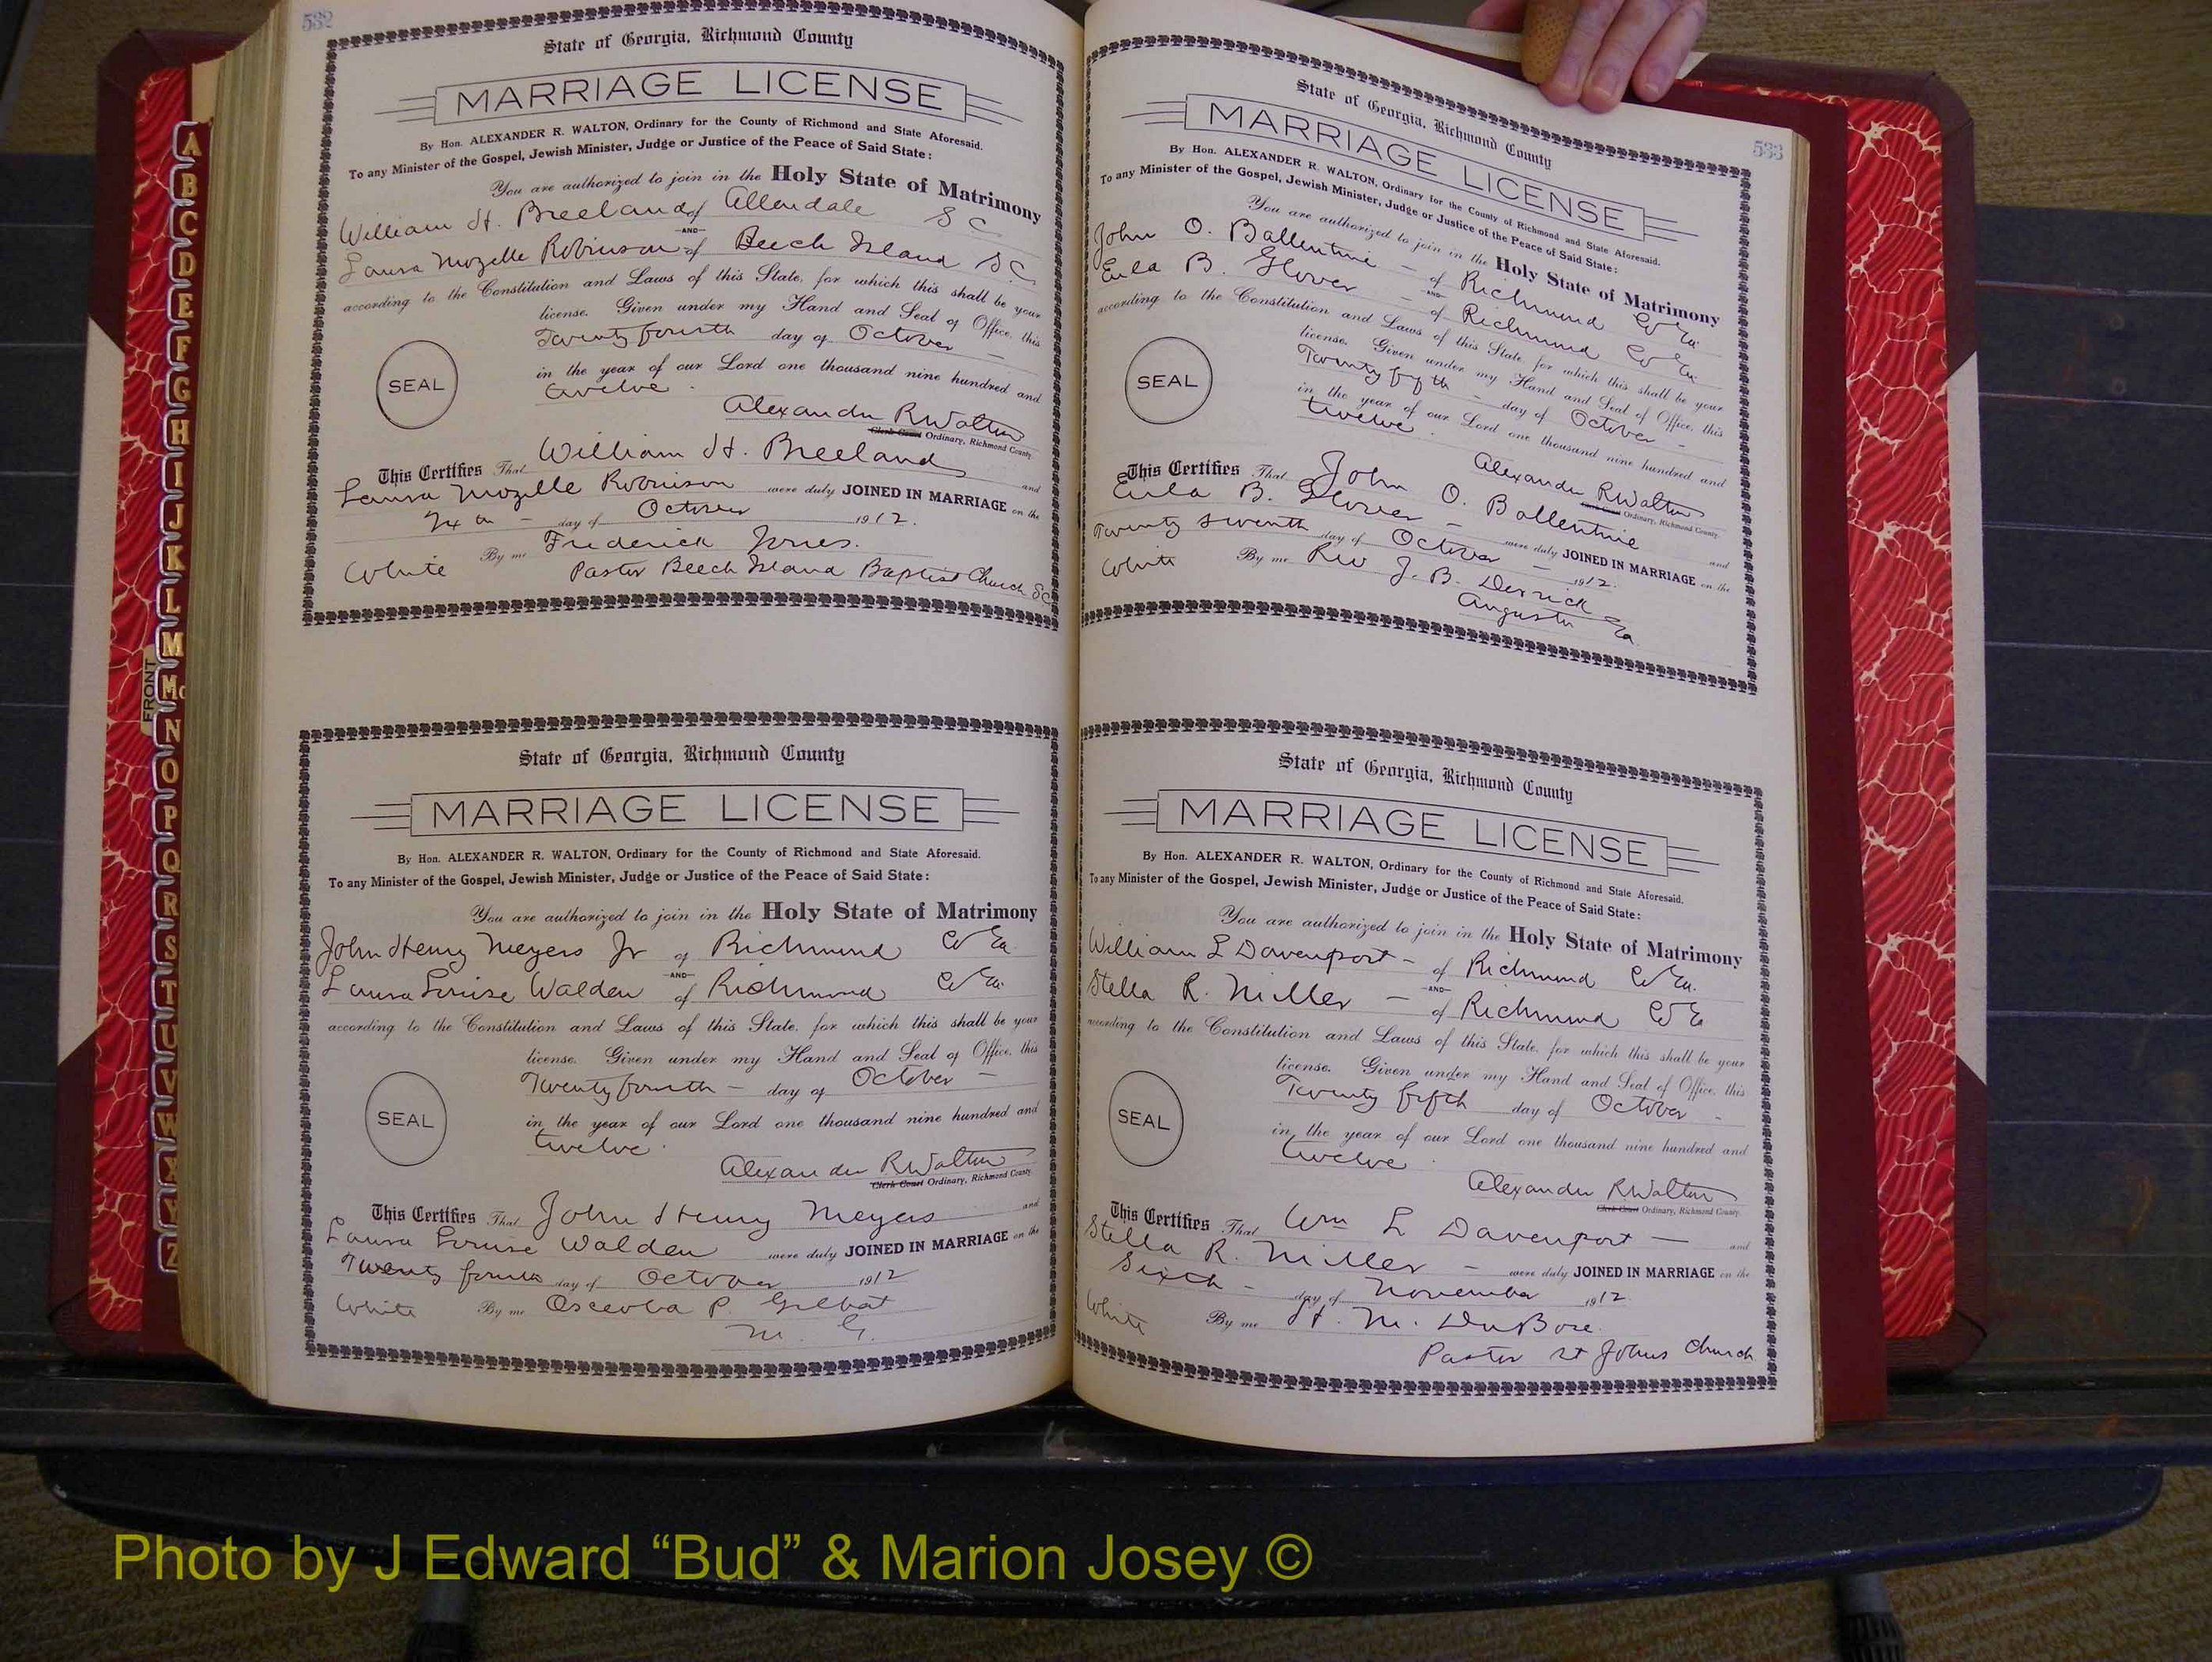 532
State of Georgia, Richmond County
MARRIAGE LICENSE
By Hon. ALEXANDER R. WALTON, Ordinary for the County of Richmond and State Aforesaid.
To any Minister of the Gospel, Jewish Minister, Judge or Justice of the Peace of Said State:
You are authorized to join in the Holy State of Matrimony
William H. Breeland of Allendale S C
AND
Laura Mozelle Robinson of Beech Island S C
according to the Constitution and Laws of this State, for which this shall be your
license. Given under my Hand and Seal of Office, this
Twenty fourth day of October
in the year of our Lord one thousand nine hundred and
twelve
SEAL
Alexander R Walton
Clerk Court Ordinary, Richmond County.
This Certifies That William H. Breeland and
Laura Mozelle Robinson were duly JOINED IN MARRIAGE on the
day of October 1912.
By me Frederick Jones.
White Pastor Beech Island Baptist Church SC
State of Georgia, Richmond County
MARRIAGE LICENSE
By Hon. ALEXANDER R. WALTON, Ordinary for the County of Richmond and State Aforesaid.
To any Minister of the Gospel, Jewish Minister, Judge or Justice of the Peace of Said State:
You are authorized to join in the Holy State of Matrimony
John Henry Meyers Jr of Richmond Co Ga
AND
Laura Louise Walden of Richmond Co Ga
according to the Constitution and Laws of this State, for which this shall be your
license. Given under my Hand and Seal of Office, this
Twenty fourth day of October
in the year of our Lord one thousand nine hundred and
twelve
SEAL
Alexander R Walton
Clerk Court Ordinary, Richmond County.
This Certifies That John Henry Meyers and
Laura Louise Walden were duly JOINED IN MARRIAGE on the
Twenty fourth day of October 1912
White By me Osceola P. Gilbert
M. G.
533
State of Georgia, Richmond County
MARRIAGE LICENSE
By Hon. ALEXANDER R. WALTON, Ordinary for the County of Richmond and State Aforesaid.
To any Minister of the Gospel, Jewish Minister, Judge or Justice of the Peace of Said State:
You are authorized to join in the Holy State of Matrimony
John O. Ballentine of Richmond Co Ga
AND
Eula B. Glover of Richmond Co Ga
according to the Constitution and Laws of this State, for which this shall be your
license. Given under my Hand and Seal of Office, this
Twenty fifth day of October
in the year of our Lord one thousand nine hundred and
twelve
SEAL
Alexander R Walton
Clerk Court Ordinary, Richmond County.
This Certifies That John O. Ballentine and
Eula B. Glover were duly JOINED IN MARRIAGE on the
Twenty seventh day of October 1912.
White By me Rev J. B. Derrick
Augusta Ga
State of Georgia, Richmond County
MARRIAGE LICENSE
By Hon. ALEXANDER R. WALTON, Ordinary for the County of Richmond and State Aforesaid.
To any Minister of the Gospel, Jewish Minister, Judge or Justice of the Peace of Said State:
You are authorized to join in the Holy State of Matrimony
William L Davenport of Richmond Co Ga.
AND
Stella R. Miller of Richmond Co Ga
according to the Constitution and Laws of this State, for which this shall be your
license. Given under my Hand and Seal of Office, this
Twenty fifth day of October
in the year of our Lord one thousand nine hundred and
twelve
SEAL
Alexander R Walton
Clerk Court Ordinary, Richmond County.
This Certifies That Wm L Davenport and
Stella R. Miller were duly JOINED IN MARRIAGE on the
Sixth day of November 1912.
White By me H. M. DuBose
Pastor St Johns Church
A
B
C
D
E
F
G
H
I
J
K
L
M
Mc
N
O
P
Q
R
S
T
U
V
W
X
Y
Z
FRONT
Photo by J Edward “Bud” & Marion Josey ©